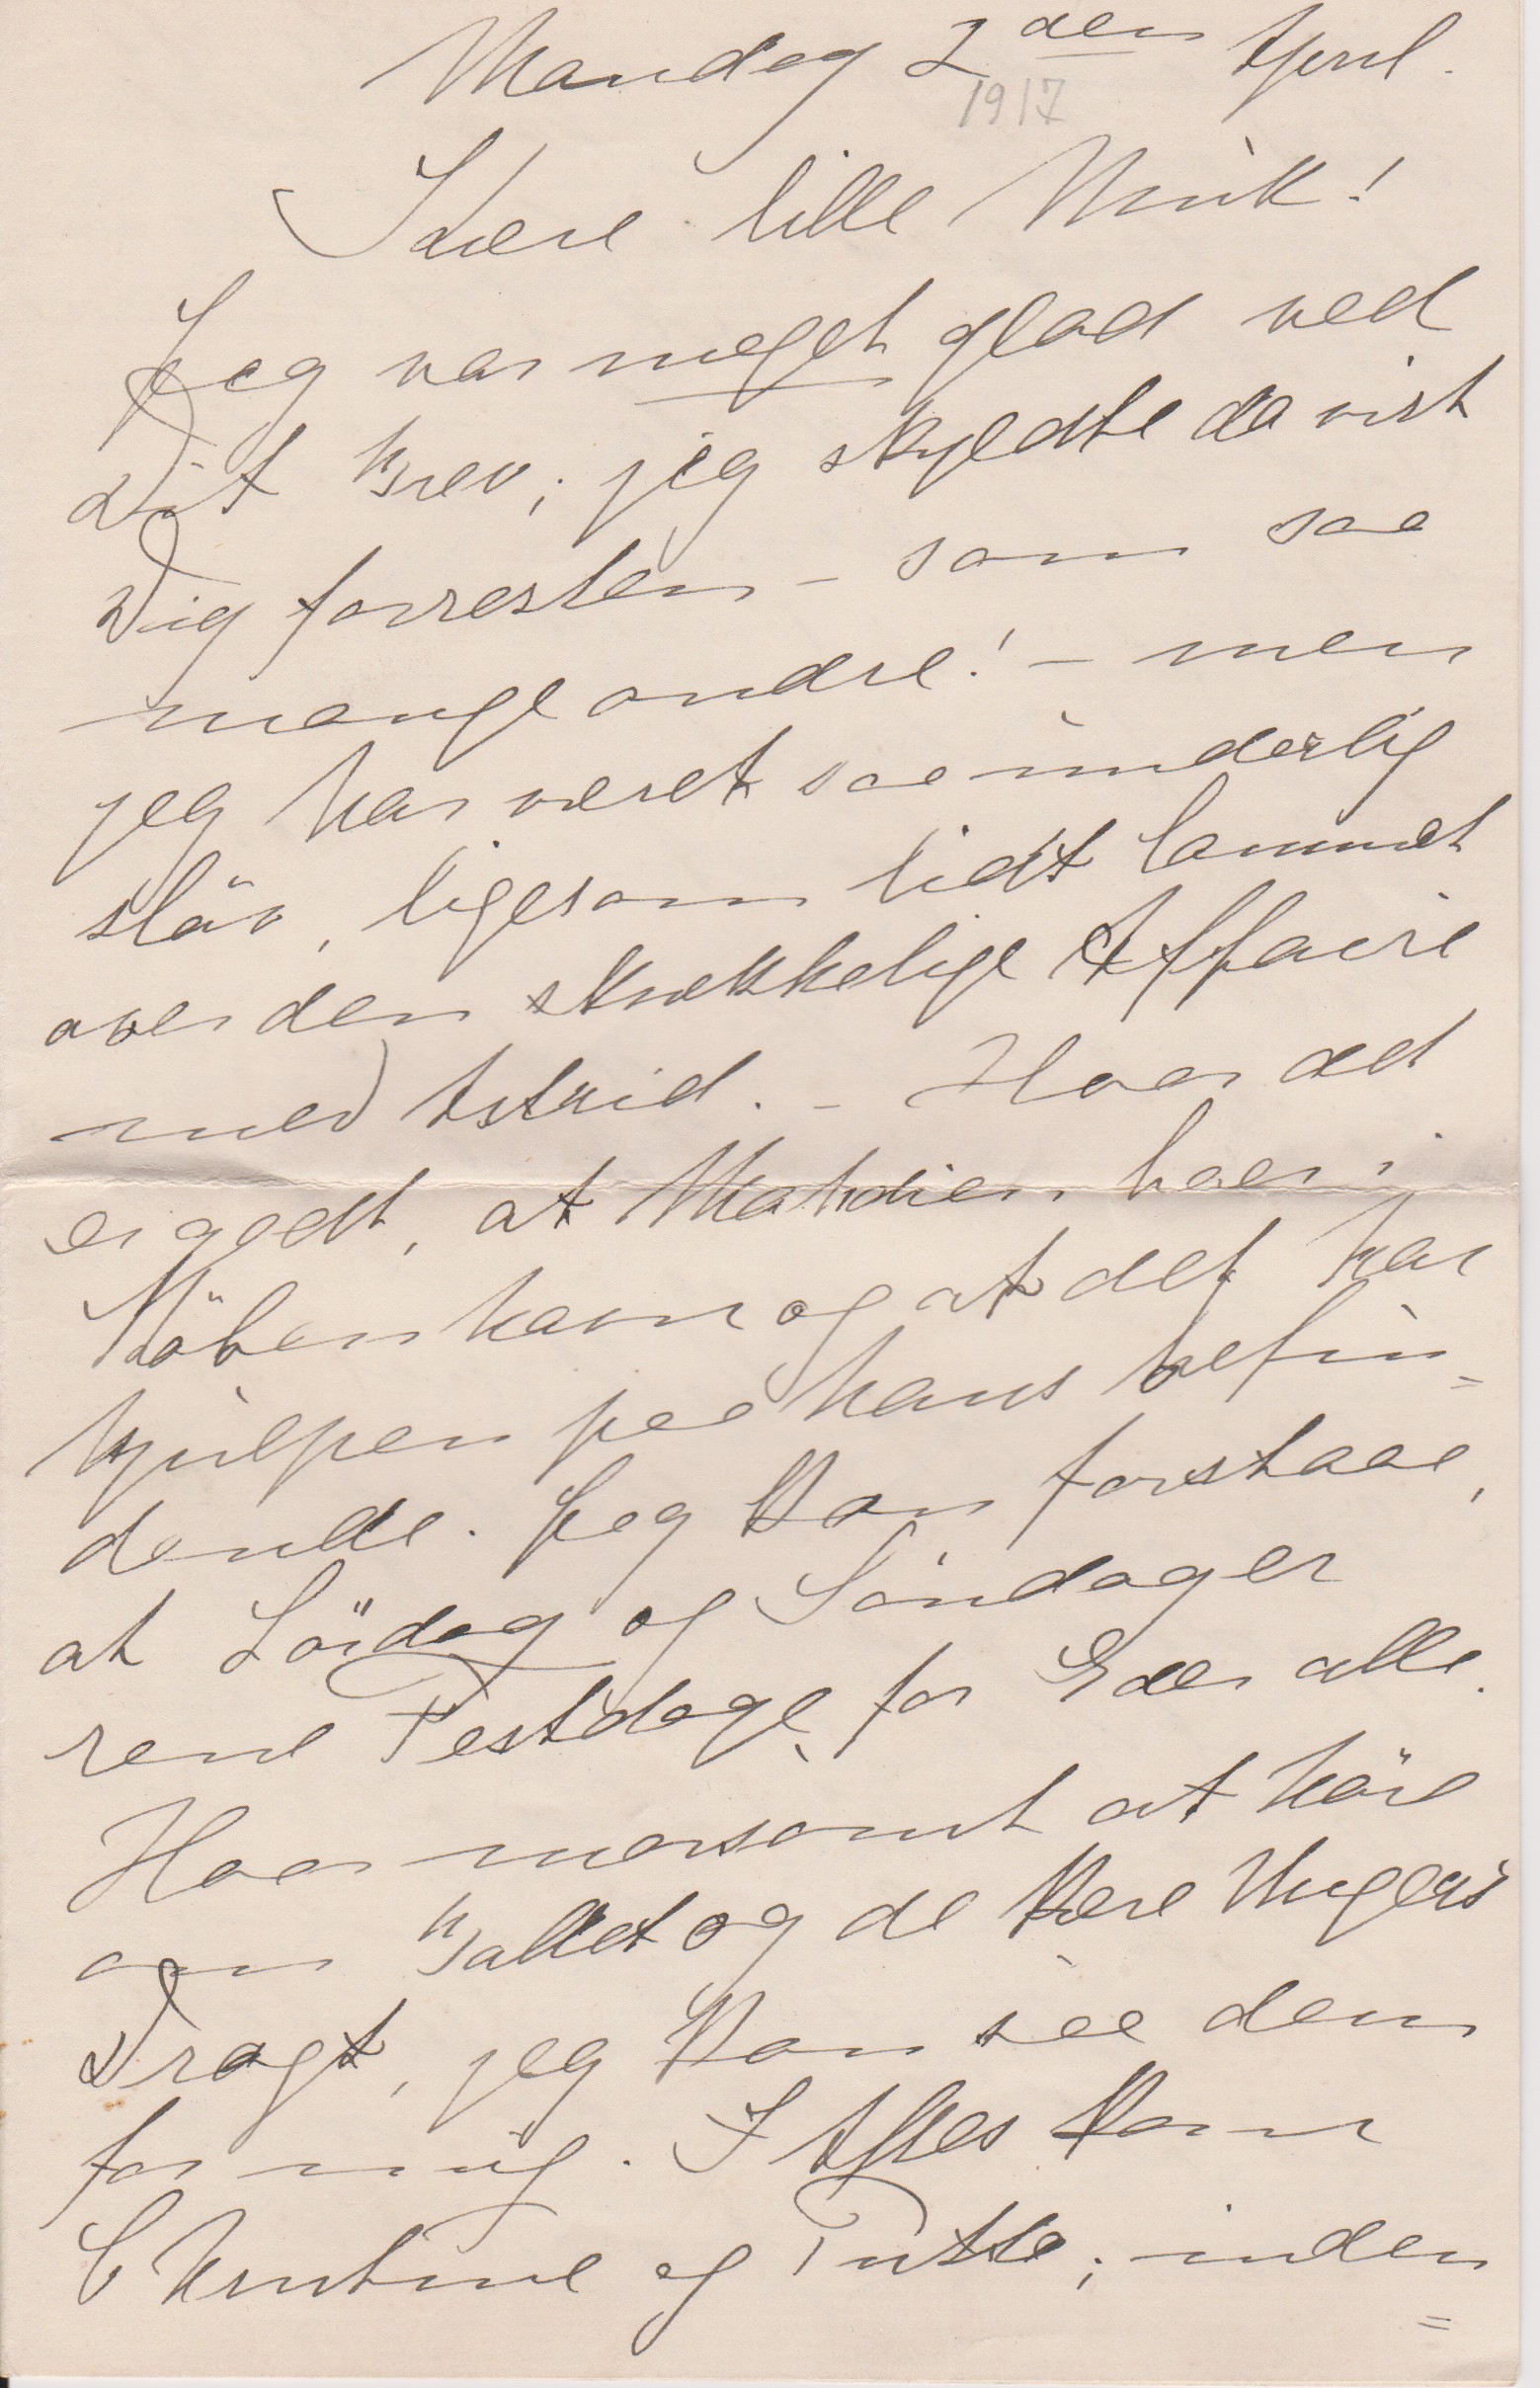 Mandag 2den April.
1917
Kære lille Muk!
Jeg var meget glad ved
Dit Brev; jeg skyldte da vist
Dig forresten – som saa
mange andre! – men
jeg har været saa underlig
slöv, ligesom lidt lammet
over den skrækkelige Affaire
med Astrid. – Hvor det
er godt, at Mahdien bor i
Köbenhavn og at det har
hjulpen paa hans Befin=
dende. Jeg kan forstaae,
at Lördag og Söndag er
rene Festdage for Eder alle.
Hvor morsomt at höre
om Ballet og de kære Ungers
Dragt, jeg kan see dem
for mig. I Aftes kom
Christine og Putte; inden=